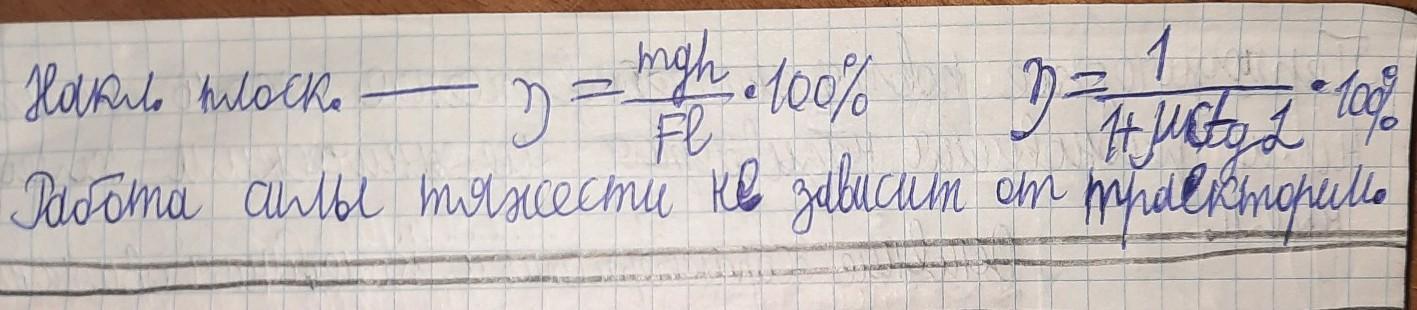 Накл. плоск. — η = mgh/Fl · 100% η = 1/(1+μctgα) · 100%
Работа силы тяжести не зависит от траектории.